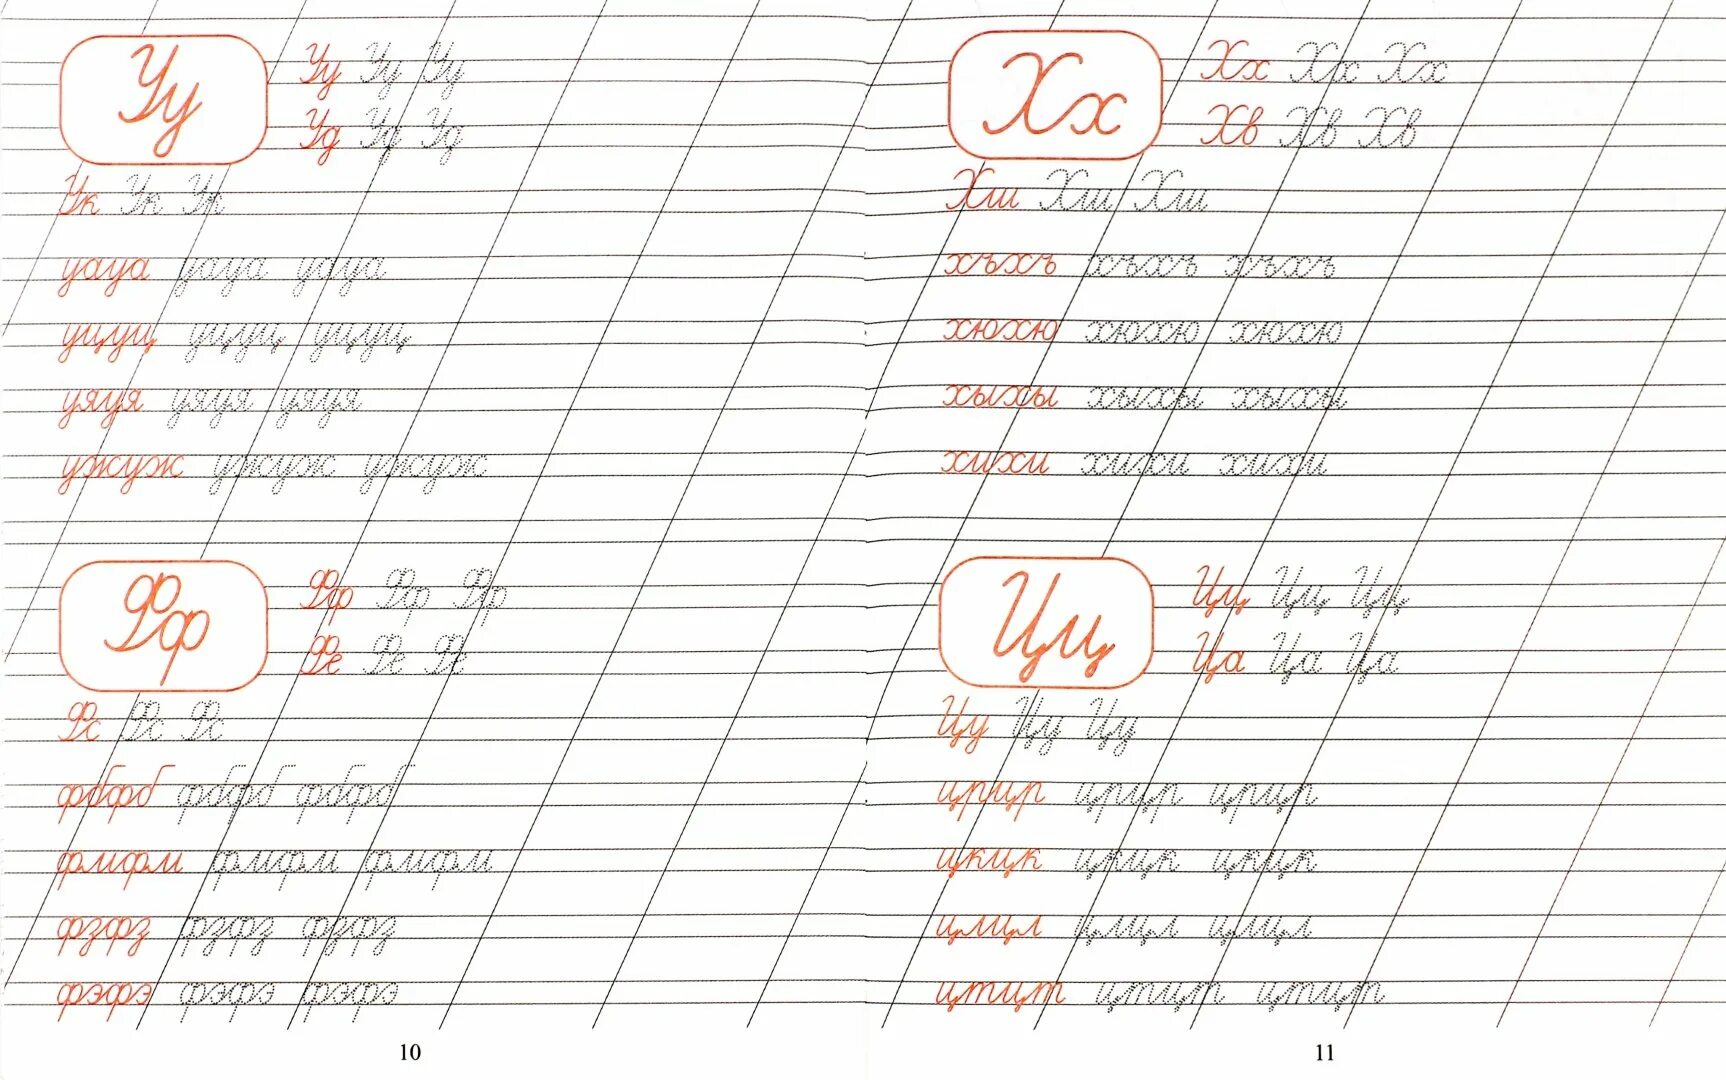 Уу Уу Уу Уу
Уд Уд Уд
Ук Ук Ук
уауа уауа уауа
уцуц уцуц уцуц
уяуя уяуя уяуя
ужуж ужуж ужуж
Фф Фф Фф Фф
Фе Фе Фе
Фс Фс Фс
фбфб фбфб фбфб
фмфм фмфм фмфм
фзфз фзфз фзфз
фэфэ фэфэ фэфэ
10
Хх Хх Хх Хх
Хв Хв Хв
Хш Хш Хш
хъхъ хъхъ хъхъ
хюхю хюхю хюхю
хыхы хыхы хыхы
хихи хихи хихи
Цц Цц Цц Цц
Ца Ца Ца
Цу Цу Цу
црцр црцр црцр
цкцк цкцк цкцк
цлцл цлцл цлцл
цтцт цтцт цтцт
11